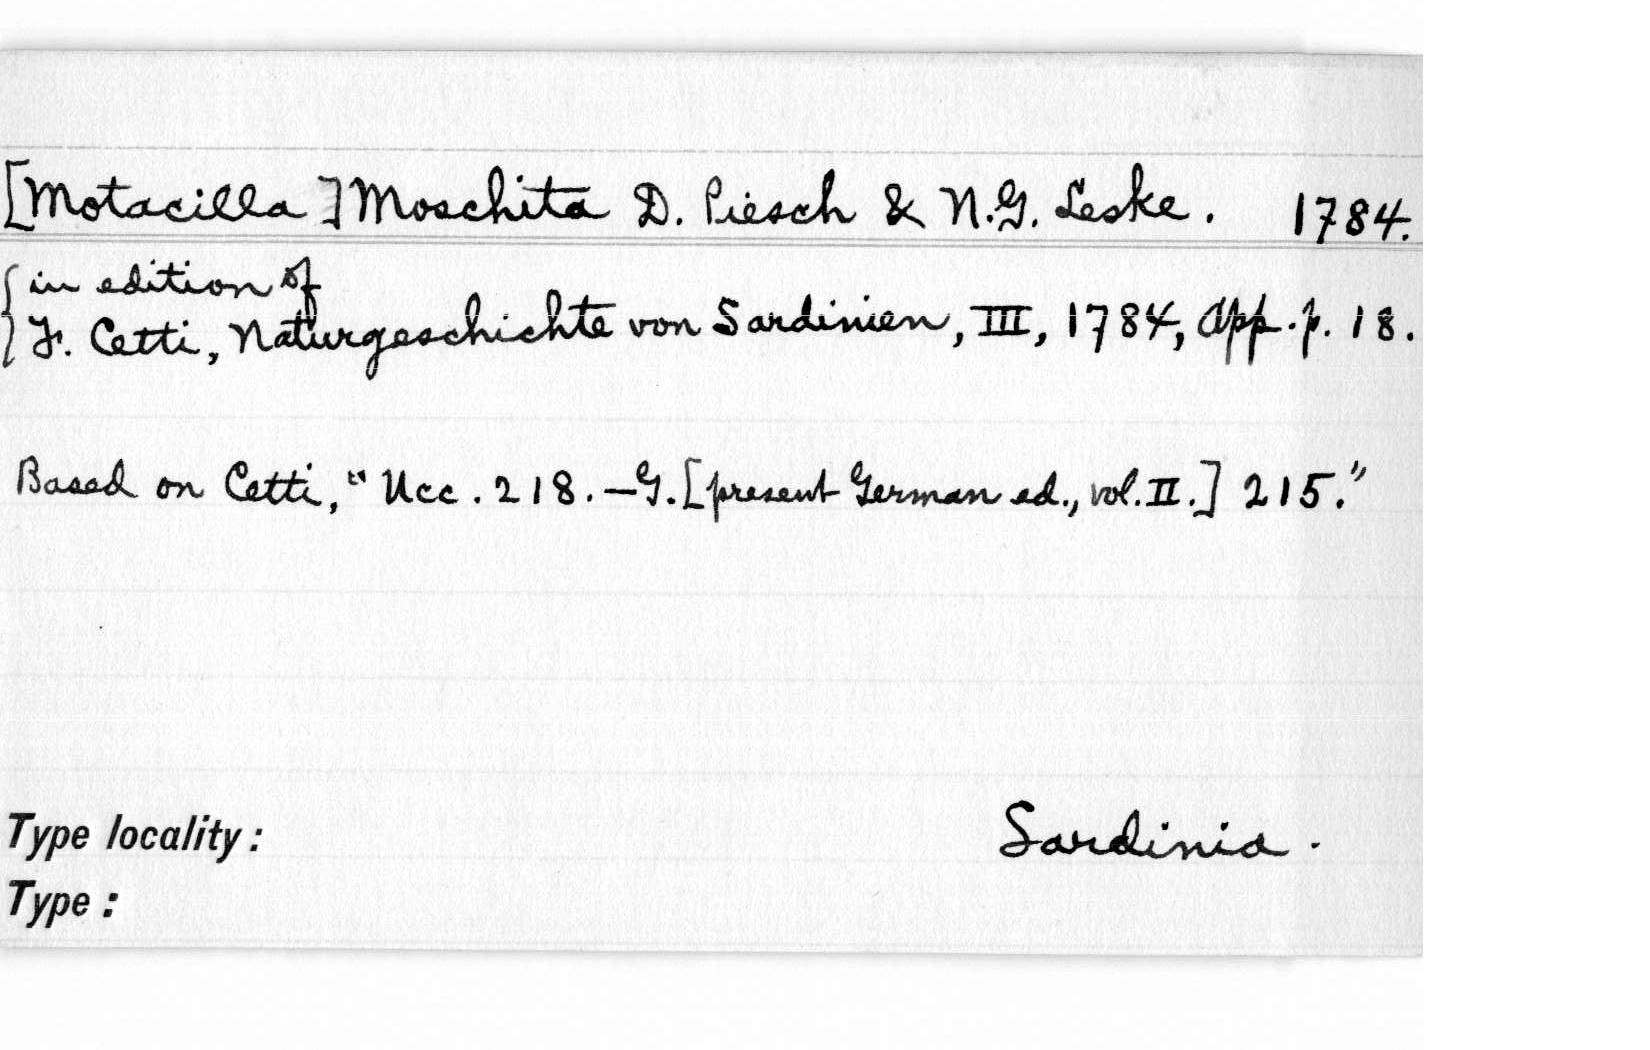 [Motacilla] Moschita D. Piesch & N.G. Leske. 1784.
{in edition of
F. Cetti, Naturgeschichte von Sardinien, III, 1784, App. p. 18.
Based on Cetti, "Ucc. 218. — G. [present German ed., vol. II.] 215."
Type locality: Sardinia.
Type: